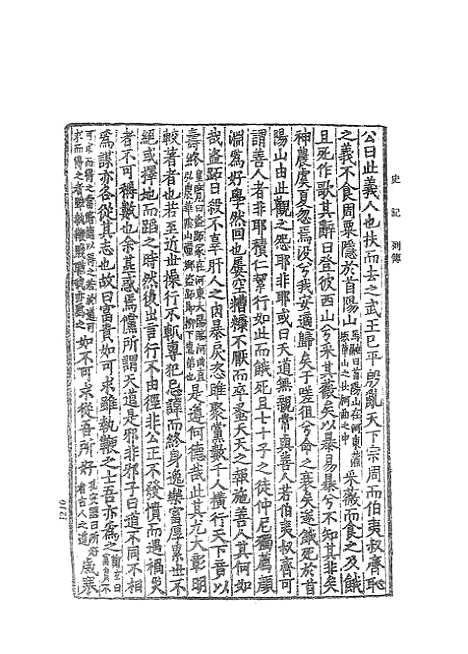 史記 列傳
公曰此義人也扶而去之武王已平殷亂天下宗周而伯夷叔齊恥
之義不食周粟隱於首陽山馬融曰首陽山在河東蒲坂華山之北河曲之中采薇而食之及餓
且死作歌其辭曰登彼西山兮采其薇矣以暴易暴兮不知其非矣
神農虞夏忽焉沒兮我安適歸矣于嗟徂兮命之衰矣遂餓死於首
陽山由此觀之怨耶非耶或曰天道無親常與善人若伯夷叔齊可
謂善人者非耶積仁絜行如此而餓死且七十子之徒仲尼獨薦顏
淵爲好學然回也屢空糟糠不厭而卒蚤夭天之報施善人其何如
哉盜跖日殺不辜肝人之肉暴戾恣睢聚黨數千人橫行天下竟以
壽終皇覽曰盜跖冢在河東大陽臨河曲直弘農華陰是遵何德哉此其尤大彰明
較著者也若至近世操行不軌專犯忌諱而終身逸樂富厚累世不
絕或擇地而蹈之時然後出言行不由徑非公正不發憤而遇禍災
者不可稱數也余甚惑焉儻所謂天道是邪非邪子曰道不同不相
爲謀亦各從其志也故曰富貴如可求雖執鞭之士吾亦爲之鄭玄曰富貴不
可求而得之當脩德以得之若於道可求而得之者雖執鞭賤職我亦爲之如不可求從吾所好孔安國曰所好者古人之道歲寒